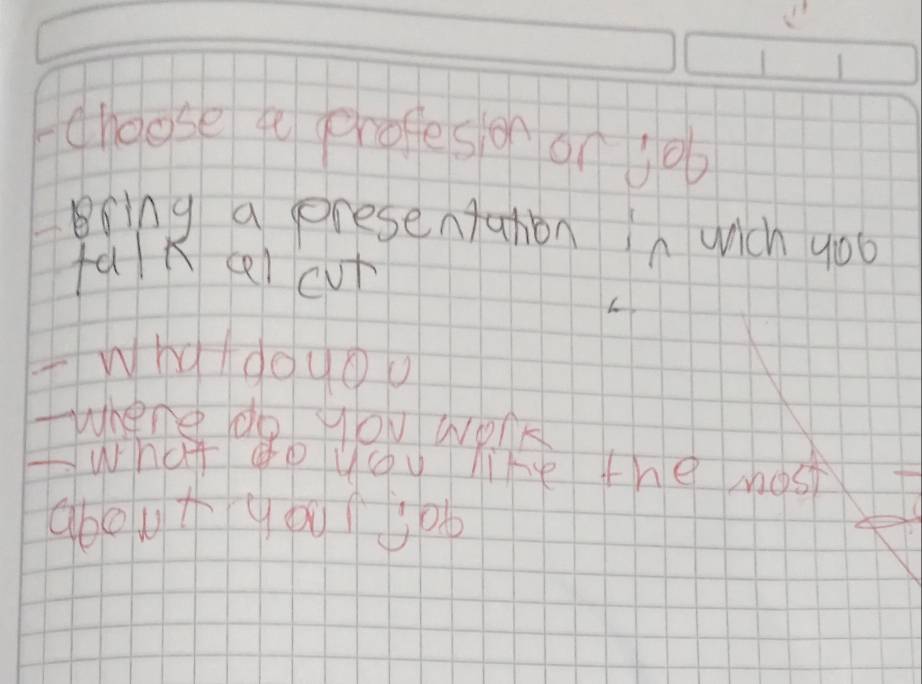 - Choose a profesion or job
- Bring a presentation in wich you
talk al cut
- What do you
- where do you work
- what do you like the most
about your job